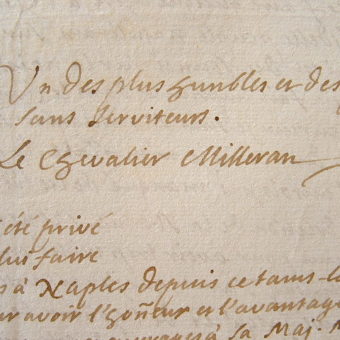 Un des plus humbles et des
sans Serviteurs.
Le Chevalier Milleran
été privé
lui faire
à Naples depuis ce tams-l
avoir l'hoñeur et l'avantag
à sa Maj.